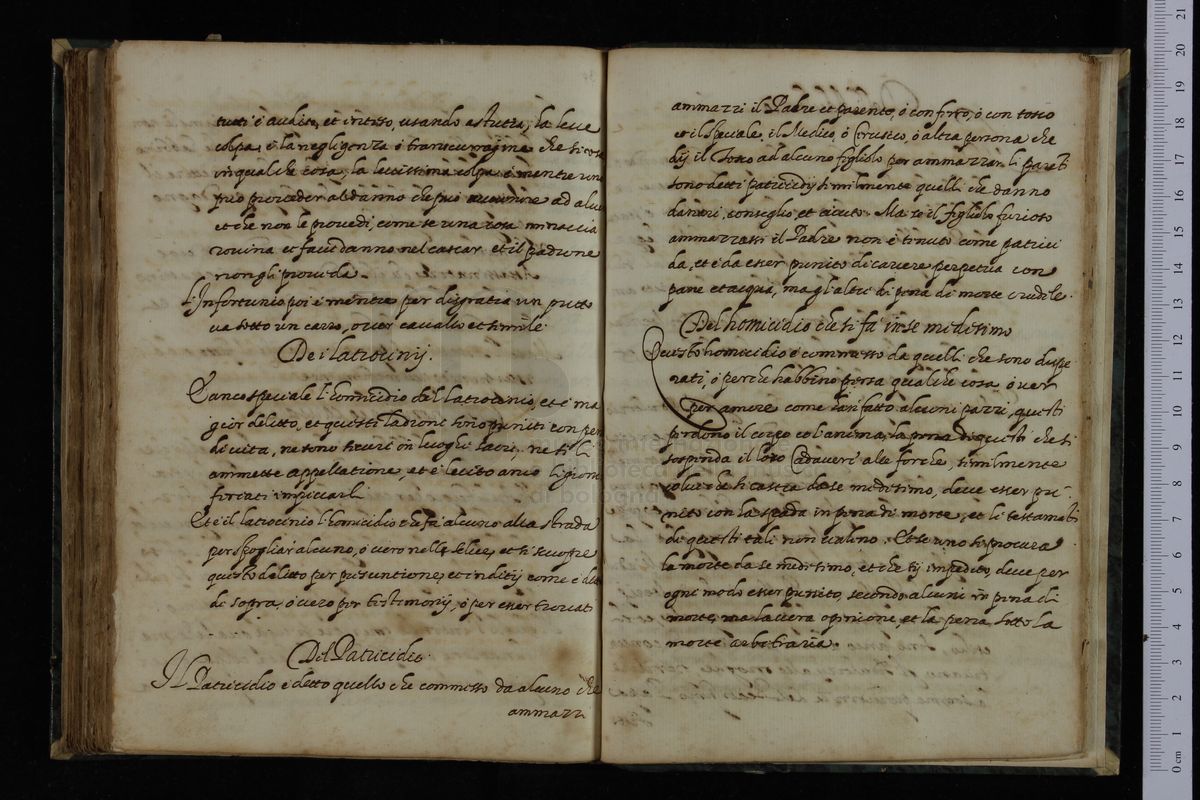 tutti è audito, et inteso, usando astutia, la leue
colpa, è la negligenza ò transcuragine che si
in qualche cosa, la leuissima colpa è mentre uno
può proueder al danno che può auenire ad
et che non le prouedi, come se una cosa minaccia
rouina et facci danno nel cascar et il padrone
non gli proueda.
L'Infortunio poi è mentre per disgratia un putto
ua sotto un carro, ouer cauallo et simile.
De i latrocinij.
È anco speciale l'homicidio del latrocinio, et è ma
gior delitto, et questi ladroni sono puniti con pena
di uita, ne sono sicuri in luoghi sacri, ne se li
ammette appellatione, et è lecito anco li giorni
feriati impiccarli
Et è il latrocinio l'homicidio che fà alcuno alla strada
per spogliar alcuno, ò uero nelle selue, et si scuopre
questo delitto per presuntione, et inditij come è detto
di sopra, ò uero per testimonij, ò per esser trouati
Del Patricidio.
Il Patricidio è detto quello che commesso da alcuno che
ammazzi
ammazzi il Padre et parente, ò con ferro, ò con tosco
et il speciale, il Medico, ò altra persona che
dij il Tosco ad alcuno figliolo per ammazzar li pareti
sono detti patricidij similmente quelli che danno
danari, conseglio, et aiuto. Ma se il figliolo furioso
ammazzassi il Padre non è tenuto come patrici
da, et è da esser punito di carcere perpetua con
pane et acqua, ma gl'altri di pena di morte crudele.
Del homicidio che si fà in se medesimo
Questo homicidio è commesso da quelli che sono dispe
rati, ò perche habbino persa qualche cosa ò uer
per amore come han fatto alcuni pazzi, questi
perdono il corpo co l'anima, la pena di questi che si
sospenda il loro Cadauere alle forche, similmente
colui che si castra da se medesimo, deue esser pu
nito con la spada in pena di morte, et li testamēti
di questi tali non ualino. Et se uno si procura
la morte da se medesimo, et che sij impedito, deue per
ogni modo esser punito, secondo alcuni in pena di
morte, ma la uera opinione, et la pena sotto la
morte arbitraria.